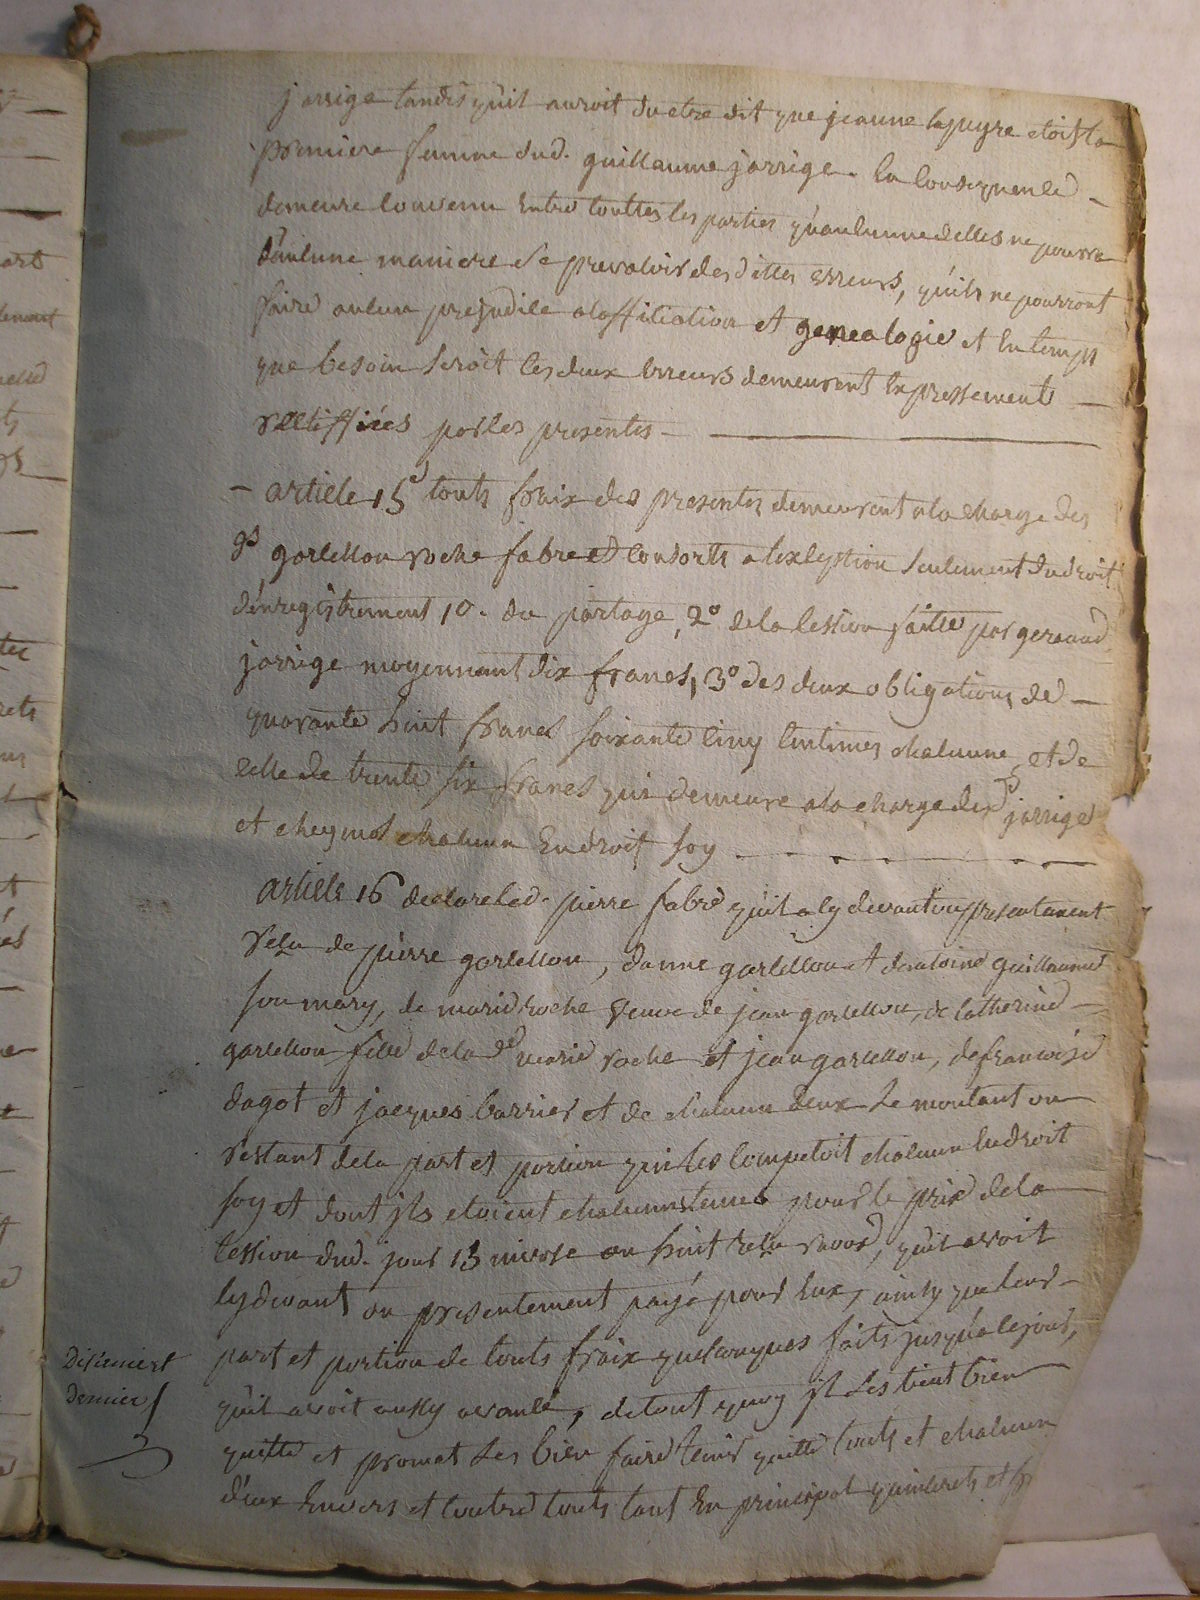 jarrige tandis quil auroit du etre dit que jeanne lapeyre etoit la
premiere femme dud. guillaume jarrige. En Consequence
demeure Convenu Entre touttes les parties qu'aulcune d'elles ne pourra
d'aulcune maniere se prevaloir des dittes erreurs, qu'ils ne pourront
faire aulcun prejudice a laffiliation et genealogie et En temps
que besoin seroit les deux Erreurs demeurent Expressement
rectiffiées par les presentes
- article 15e touts fraix des presentes demeurent a la charge des
ds garcellon roche fabre et Consorts a l'exception seulement du droit
d'enregistrement 1o. du partage, 2o de la Cession faitte par geraud
jarrige moyennant dix francs, 3o des deux obligations de
quarante huit francs soixante Cinq Centimes chalcune, et de
celle de trente six francs qui demeure a la charge des d jarrige
et cheymol chalcun En droit soy
article 16 declare led. pierre fabre qu'il a Cy devant ou presentement
reçu de pierre garcellon, d'anne garcellon et d'antoine guillaume
son mary, de marie roche veuve de jean garcellon, de Catherine
garcellon fille de la de marie roche et jean garcellon, de françoise
dagot et jacques barrier et de chalcun deux Le montant ou
restant de la part et portion qui les Competoit chalcun En droit
soy et dont ils etoient chalcuns tenus pour le prix de la
Cession dud. jour 13 nivose an huit reçu, qu'il avoit
Cy devant ou presentement payé pour Eux, ainsy que leur
part et portion de touts fraix quelconques faits jusqu'a le jour,
qu'il avoit aussy avancé, de tout quoy il Les tient bien
quitte et promet Les bien faire tenir quitte touts et chalcun
d'eux Envers et Contre touts tant En principal qu'interets et
Dernier